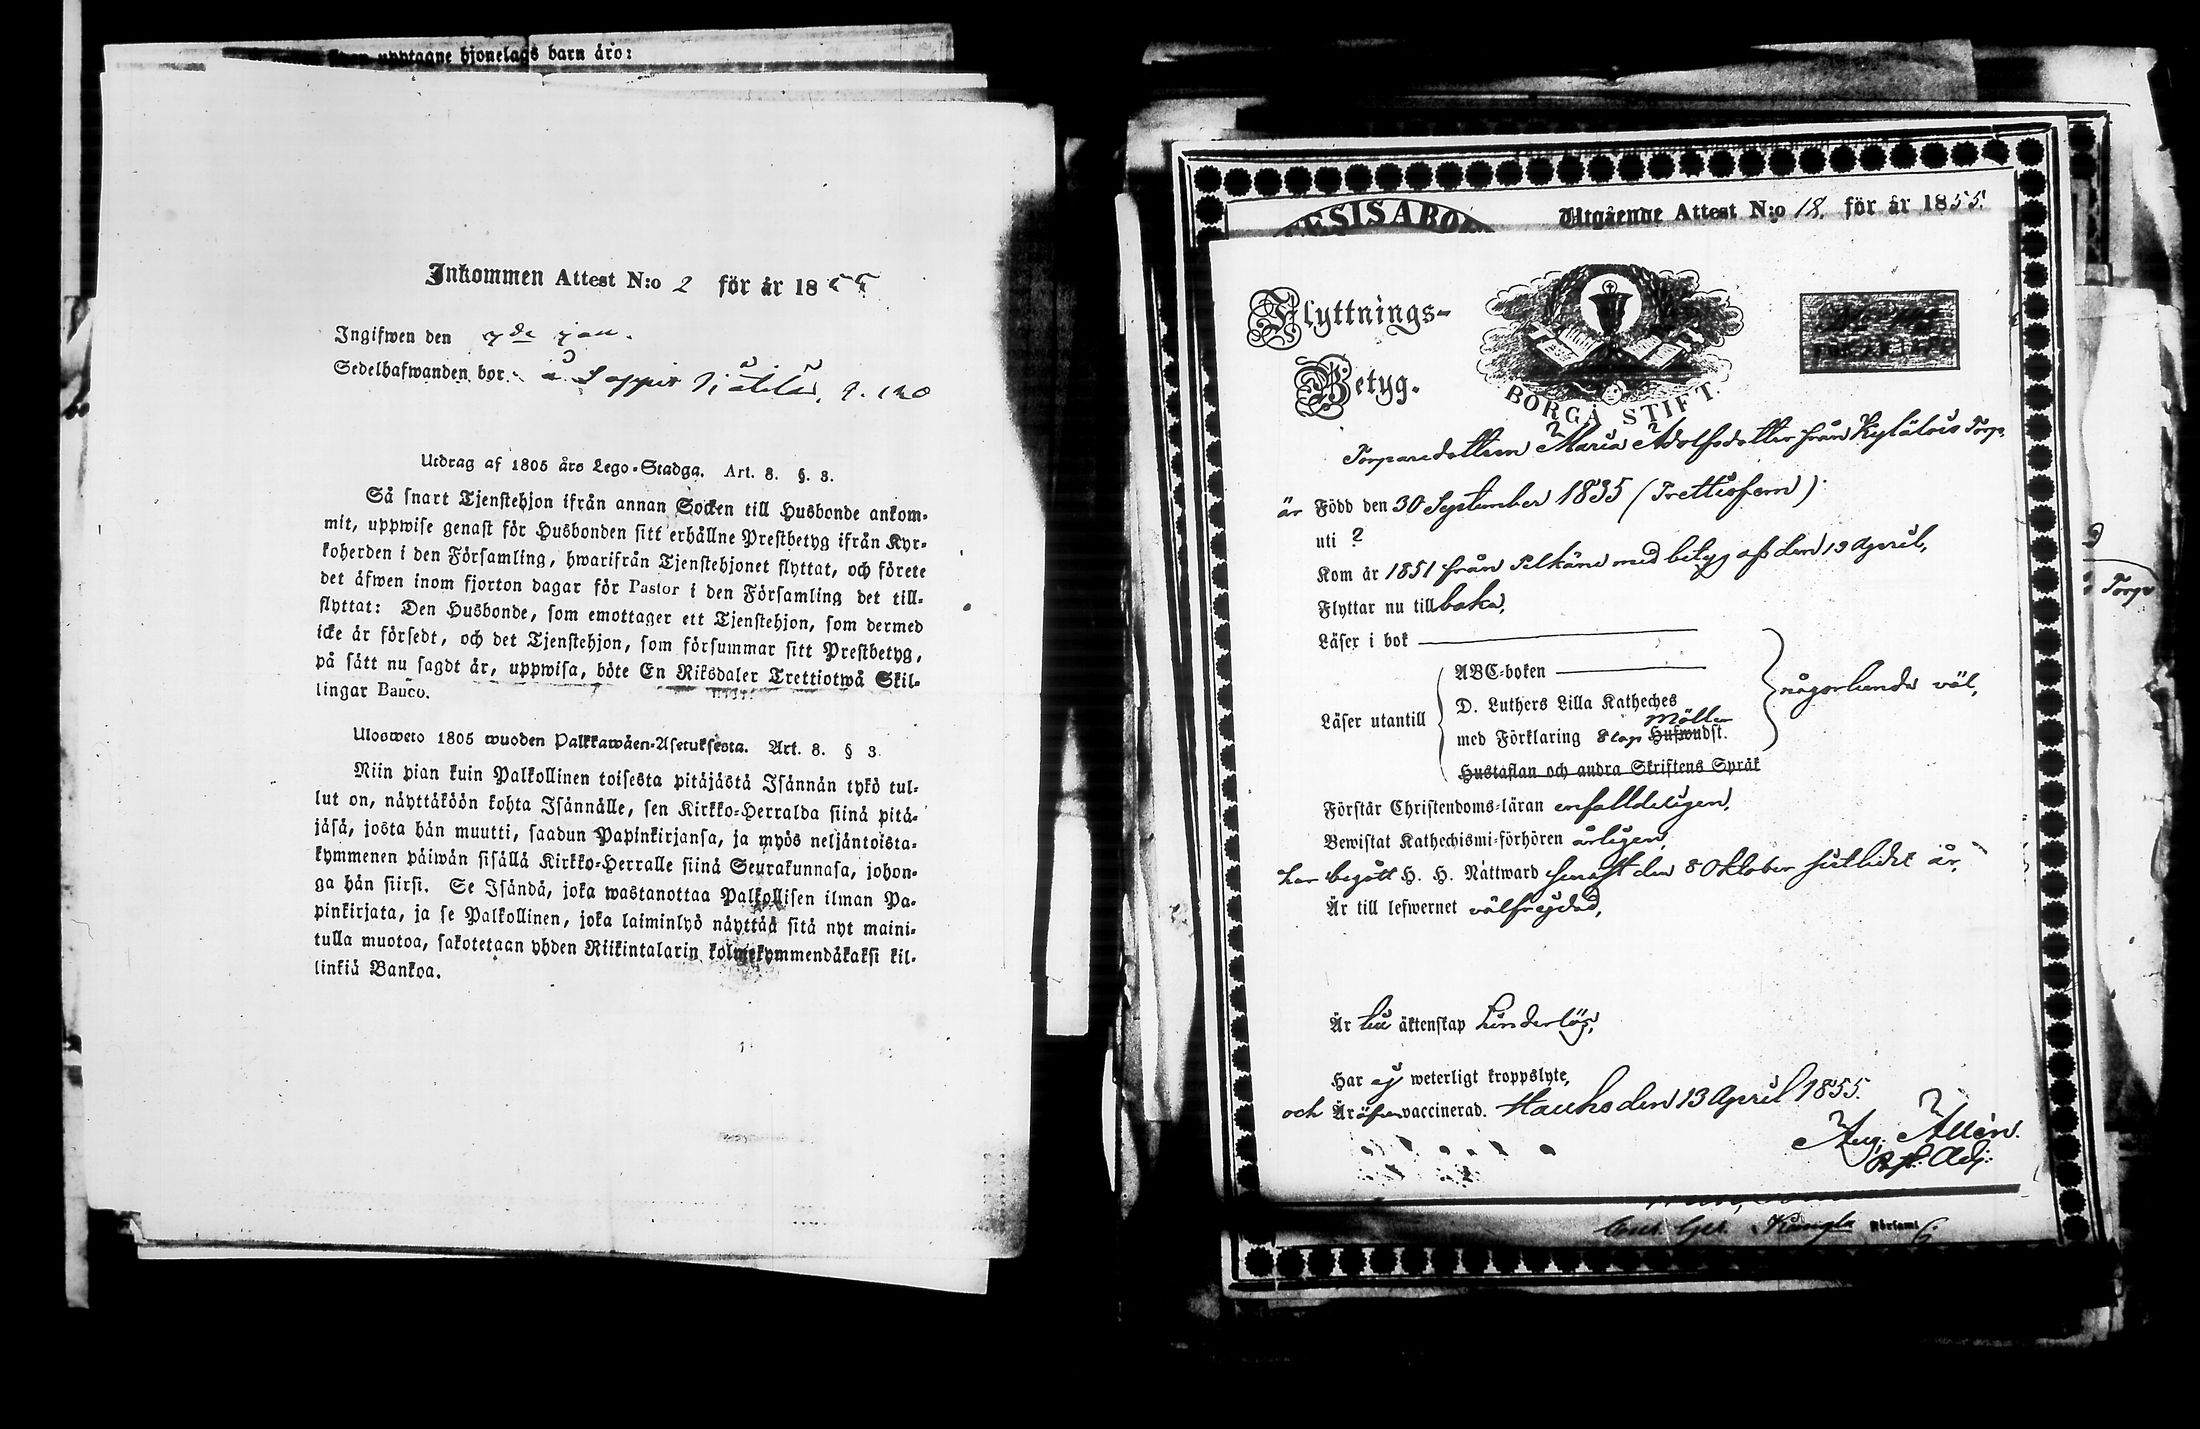 upptagne hjonelags barn äro:
Inkommen Attest N:o 2 för år 1855
Ingifwen den 7de jan.
Sedelhafwanden bor å
Utdrag af 1805 års Lego-Stadga. Art. 8. §. 3.
Så snart Tjenstehjon ifrån annan Socken till Husbonde ankom-
mit, uppwise genast för Husbonden sitt erhållne Prestbetyg ifrån Kyr-
koherden i den Församling, hwarifrån Tjenstehjonet flyttat, och förete
det äfwen inom fjorton dagar för Pastor i den Församling det till-
flyttat: Den Husbonde, som emottager ett Tjenstehjon, som dermed
icke är försedt, och det Tjenstehjon, som försummar sitt Prestbetyg,
på sätt nu sagdt är, uppwisa, böte En Riksdaler Trettiotwå Skil-
lingar Banco.
Ulosweto 1805 wuoden Palkkawäen-Asetuksesta. Art. 8. § 3
Niin pian kuin Palkollinen toisesta pitäjästä Isännän tykö tul-
lut on, näyttäköön kohta Isännälle, sen Kirkko-Herralda siinä pitä-
jäsä, josta hän muutti, saadun Papinkirjansa, ja myös neljäntoista-
kymmenen päiwän sisällä Kirkko-Herralle siinä Seurakunnasa, johon-
ga hän siirsi. Se Isändä, joka wastanottaa Palkollisen ilman Pa-
pinkirjata, ja se Palkollinen, joka laiminlyö näyttää sitä nyt maini-
tulla muotoa, sakotetaan yhden Riikintalarin kolmekymmendäkaksi kil-
linkiä Bankoa.
Utgående Attest N:o 18. för år 1855.
Flyttnings-
Betyg.
BORGÅ STIFT.
Torparedottren Maria Adolfsdotter från Kylätois Torp,
är Född den 30 September 1835 (Trettiofem)
uti ?
Kom år 1851 från Pelkäne med betyg af den 19 April,
Flyttar nu till baka,
Läser i bok
ABC-boken
någorlunda väl,
D. Luthers Lilla Katheches
Läser utantill
Möller
med Förklaring Hufwudst.
Hustaflan och andra Skriftens Språk
Förstår Christendoms-läran enfalldeligen,
Bewistat Kathechismi-förhören årligen,
har begått H. H. Nattward senast den 8 Oktober sistlidet år,
Är till lefwernet välfrejdad,
Är till äktenskap hinderlös,
Har ej weterligt kroppslyte,
och Är äfven vaccinerad. Hauho den 13 April 1855.
Aug. Allén.